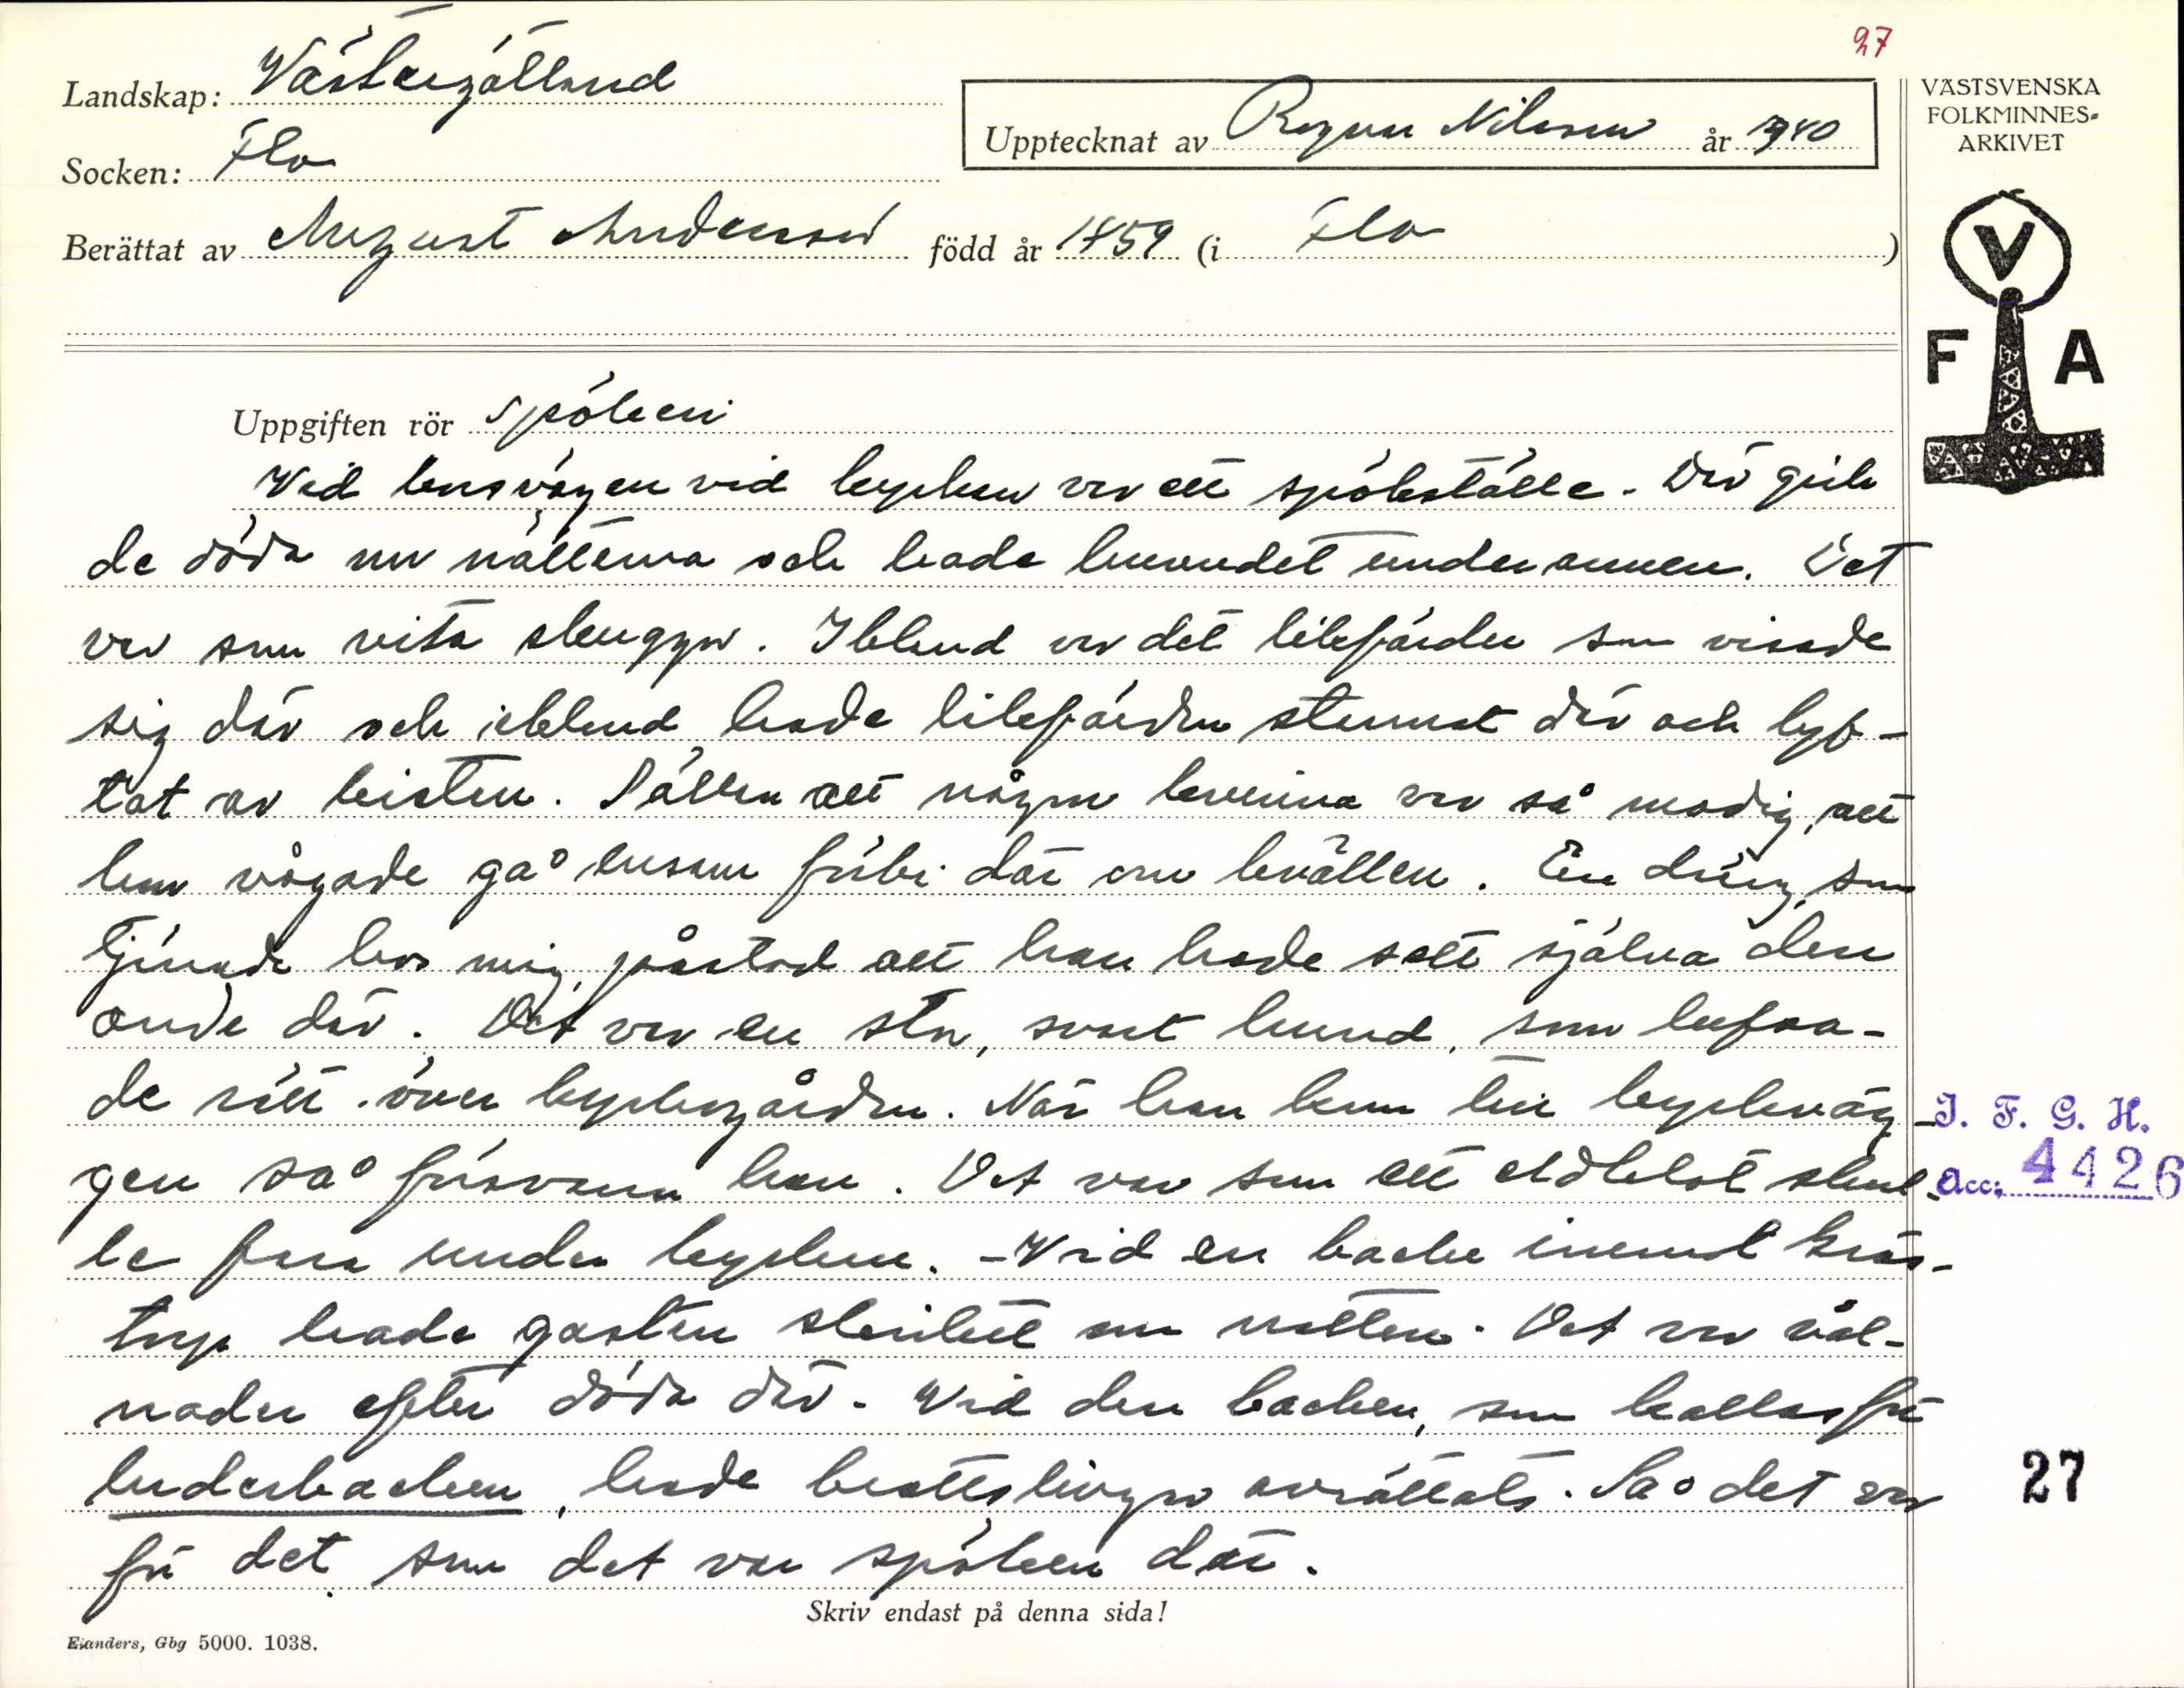 27
Landskap: Västergötland
Upptecknat av Ragnar Nilsson år 1940
VÄSTSVENSKA
FOLKMINNES-
ARKIVET
Socken: Flo
Berättat av August Andersson född år 1859 (i Flo)
V
F A
Uppgiften rör spökeri
Vid korsvägen vid kyrkan var ett spökställe. Där gick
de döda om nätterna och hade huvudet under armen. Det
var som vita skuggor. Ibland var det likfärder som visade
sig där och ibland hade likfärden stannat där och lyf-
tat av kistan. Sällan att någon kvinna var så modig, att
hon vågade gå ensam förbi där om kvällen. En dräng, som
tjänade hos mig, påstod att han hade sett själva den
onde där. Det var en stor, svart hund, som lufsa-
de rätt över kyrkogården. När han kom till kyrkväg-
gen så försvann han. Det var som ett eldklot skul-
le fara under kyrkan. - Vid en backe inemot Gräs-
torp hade gasten skrikit om natten. Det var vål-
nader efter döda där. Vid den backen, som kallas för
luderbacken, hade brottslingar avrättats. Så det var
för det som det var spökeri där.
J. F. G. H.
Acc: 4426
27
Skriv endast på denna sida!
Elanders, Gbg 5000. 1038.